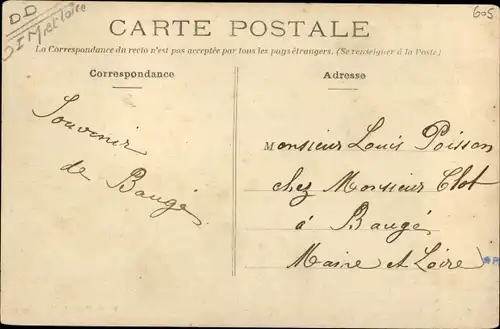 DD
I M et Loire
605
CARTE POSTALE
La Correspondance du recto n'est pas acceptée par tous les pays étrangers. (Se renseigner à la Poste)
Correspondance
Souvenir
de Baugé
Adresse
Monsieur Louis Poisson
chez Monsieur Clot
à Baugé
Maine et Loire